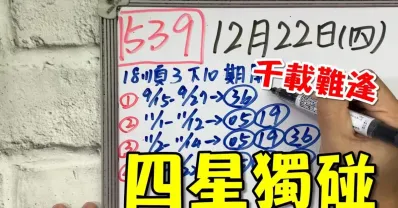 539 12月22日(四)
18順3下10期
千載難逢
① 9/15-9/27→36
② 11/1-11/12→05 19
③ 11/2-11/24→05 19 36
四星獨碰